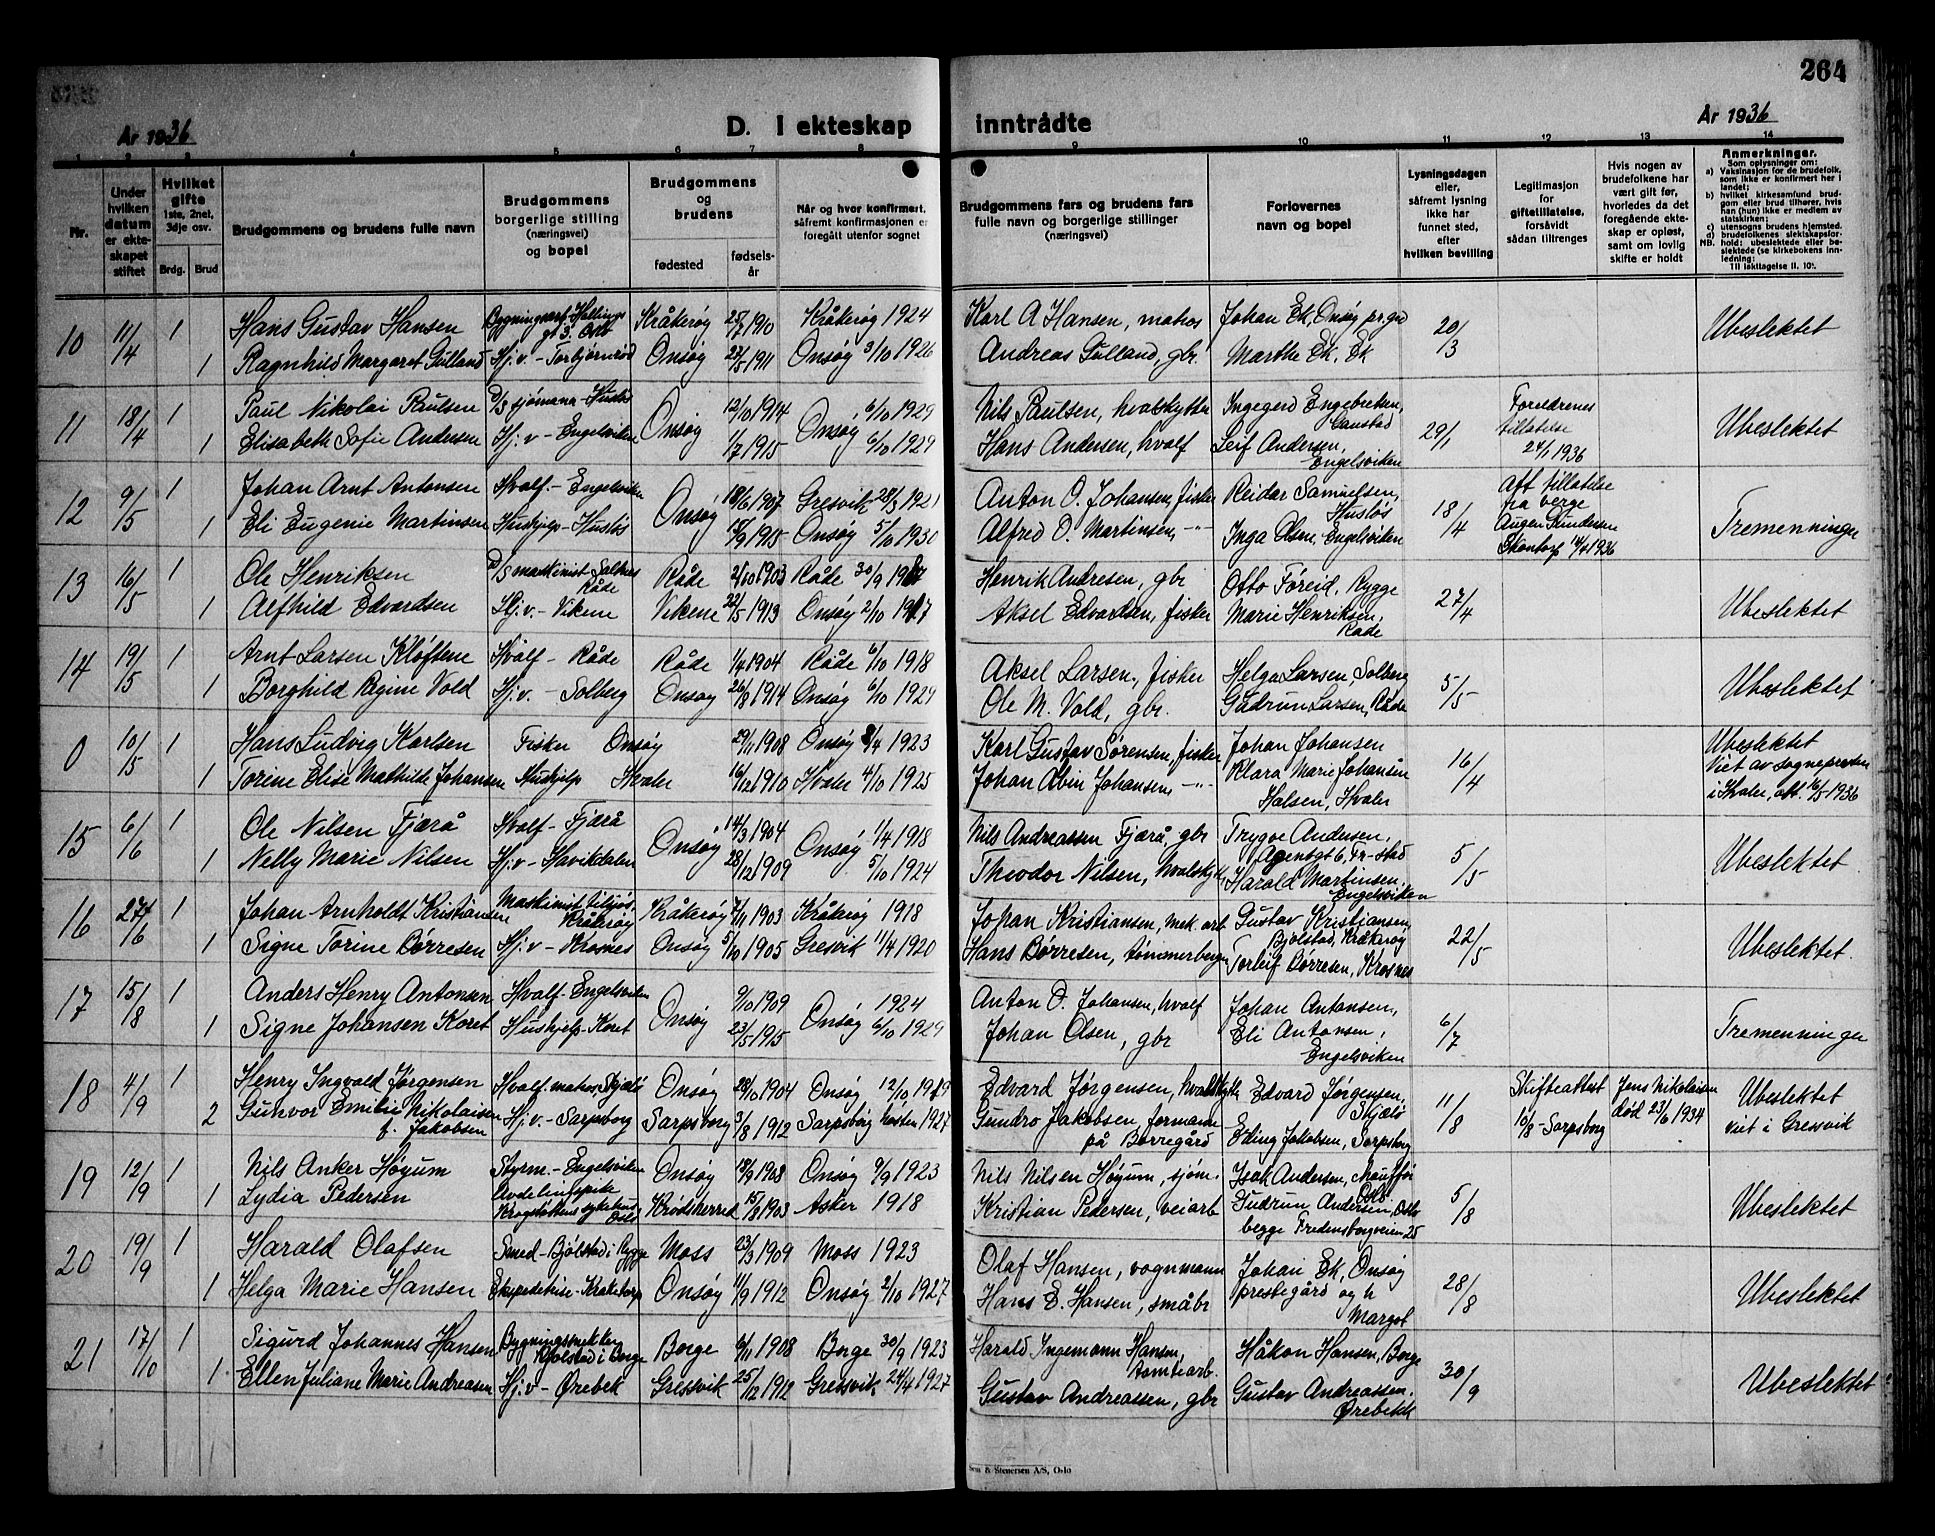 264
År 1936
D. I ekteskap inntrådte
År 1936
1 2 3 4 5 6 7 8 9 10 11 12 13 14
Nr.
Under hvilken datum er ekteskapet stiftet
Hvilket gifte 1ste, 2net, 3dje osv.
Brdg. Brud
Brudgommens og brudens fulle navn
Brudgommens borgerlige stilling (næringsvei) og bopel
Brudgommens og brudens
fødested
fødselsår
Når og hvor konfirmert, såfremt konfirmasjonen er foregått utenfor sognet
Brudgommens fars og brudens fars fulle navn og borgerlige stillinger (næringsvei)
Forlovernes navn og bopel
Lysningsdagen eller, såfremt lysning ikke har funnet sted, efter hvilken bevilling
Legitimasjon for giftetillatelse, forsåvidt sådan tiltrenges
Hvis nogen av brudefolkene har vært gift før, hvorledes da det foregående ekteskap er opløst, samt om lovlig skifte er holdt
Anmerkninger.
Som oplysninger om:
a) Vaksinasjon for de brudefolk, som ikke er konfirmert her i landet;
b) hvilket kirkesamfund brudgom eller brud tilhører, hvis han (hun) ikke er medlem av statskirken;
c) utensogns brudens hjemsted.
d) brudefolkenes slektskapsforhold: ubeslektede eller beslektede (se kirkebokens innledning;
NB. Til iakttagelse II. 10).
10 11/4 1 Hans Gustav Hansen Kråkerøy 25/7 1910 Kråkerøy 1924 Karl A Hansen, matros Johan Ek, Onsøy pr.grd 20/3 Ubeslektet
1 Ragnhild Margaret Gulland Hj.v - Torbjørnrød Onsøy 1911 Onsøy 3/10 1926 Andreas Gulland, gbr. Marthe Ek, Ek
11 18/4 1 Paul Nikolai Paulsen D/S sjømann - Husløs Onsøy 12/10 1914 Onsøy 6/10 1929 Nils Paulsen, hvalskytter Ingegerd Engebretsen, 29/1 Foreldrenes tillatelse 24/1 1936 Ubeslektet
1 Elisabeth Sofie Andersen Hj.v - Engelsviken 1/7 1915 6/10 1929 Hans Andersen, hvalf Leif Andersen, Engelsviken
12 9/5 1 Johan Arnt Antonsen Hvalf. - Engelsviken Onsøy 18/6 1907 Gresvik 28/3 1921 Anton O. Johansen, fisker Reidar Samuelsen, Husløs 18/4 Aft tillatelse fra verge 1936 Tremenninger
1 Eli Eugenie Martinsen Hushjelp - Husløs 1915 Onsøy 5/10 1930 Alfred O. Martinsen, -"- Inga Olsen, Engelsviken
13 16/5 1 Ole Henriksen D/S maskinist Saltnes Råde Råde 2/10 1903 Råde 30/9 Henrik Andresen, gbr Otto Føreid, Rygge 27/4 Ubeslektet
1 Alfhild Edvardsen Hj.v. - Vikene Vikene 22/5 1913 Onsøy 2/10 Aksel Edvardsen, fisker Marie Henriksen, Råde
14 19/5 1 Arnt Larsen Kløftene Hvalf - Råde Råde 1/4 1904 Råde 6/10 1918 Aksel Larsen, fisker Helga Larsen, Solberg 5/5 Ubeslektet
1 Borghild Regine Vold Hj.v. - Solberg Onsøy 26/8 1914 Onsøy 6/10 1929 Ole M. Vold, gbr. Gudrun Larsen, Råde
0 10/5 1 Hans Ludvig Karlsen Fisker Onsøy 29/11 1908 Onsøy 8/4 1923 Karl Gustav Sørensen, fisker Johan Johansen 16/4 Ubeslektet
1 Torine Elise Mathilde Johansen Hushjelp Hvaler 16/12 1910 Hvaler 4/10 1925 Johan Albin Johansen, -"- Klara Marie Johansen Viet av sognepresten
Halsen, Hvaler i Hvaler, att. 16/5 1936
15 6/6 1 Ole Nilsen Fjærå Hvalf - Fjærå Onsøy 14/3 1904 Onsøy 1/4 1918 Nils Andreassen Fjærå, gbr Trygve Andersen, 5/5 Ubeslektet
1 Nelly Marie Nilsen Hj.v - Havikdalen 28/12 1909 5/10 1924 Theodor Nilsen, hvalskytt. Harald Martinsen, Engelsviken
16 27/6 1 Johan Arnholdt Kristiansen Maskinist Kråkerøy Kråkerøy 1903 Kråkerøy 1918 Johan Kristiansen, mek arb Gustav Kristiansen, Bjølstad, Kråkerøy 22/5 Ubeslektet.
1 Signe Torine Børresen Hj.v - Krosnes Onsøy 5/10 1905 Gresvik 11/4 1920 Hans Børresen, tømmerberge Torleif Børresen, Krosnes
17 15/8 1 Anders Henry Antonsen Hvalf - Engelsviken Onsøy 9/10 1909 Onsøy 1924 Anton O. Johansen, hvalf Johan Antonsen, 6/7 Tremenninger
1 Signe Johansen Koret Hushjelp - Koret 23/5 1915 6/10 1929 Johan Olsen, gbr Eli Antonsen, Engelsviken
18 4/9 1 Henry Ingvald Jørgensen Hvalf. matros, Skjælø Onsøy 28/10 1904 Onsøy 12/10 1919 Edvard Jørgensen, hvalskytt Edvard Jørgensen, Skjælø 11/8 Skifteattest 10/8 - Sarpsborg Jens Nikolaisen død 23/6 1934 Ubeslektet
2 Gunvor Emilie Nikolaisen f. Jakobsen Hj.v. - Sarpsborg Sarpsborg 3/8 1912 Sarpsborg høsten 1927 Gundro Jakobsen, formann på Borregård Erling Jakobsen, Sarpsborg viet i Gressvik
19 12/9 1 Nils Anker Høyum Styrm. - Engelsviken Onsøy 18/9 1908 Onsøy 9/9 1923 Nils Nilsen Høyum, sjøm. Isak Andersen, chauffør Oslo 5/8 Ubeslektet
1 Lydia Pedersen Krødsherred 15/8 1903 Asker 1918 Kristian Pedersen, veiarb Gudrun Andersen, Oslo
begge Fredensborgveien 25
20 19/9 1 Harald Olafsen Smed - Bjølstad i Rygge Moss 23/3 1909 Moss 1923 Olaf Hansen, vognmann Johan Ek, Onsøy 28/8 Ubeslektet
1 Helga Marie Hansen Onsøy 11/9 1912 Onsøy 2/10 1927 Hans E. Hansen, småbr prestegård og h Margot
21 17/10 1 Sigurd Johannes Hansen Borge 6/11 1908 Borge 30/9 1923 Harald Ingemann Hansen, tomtearb. Håkon Hansen, Borge 30/9 Ubeslektet
1 Ellen Juliane Marie Andreasen Hj.v - Ørebek Gressvik 25/12 1912 Gressvik 24/4 1927 Gustav Andreassen, gbr Gustav Andreassen, Ørebekk
Sem & Stenersen A/S, Oslo